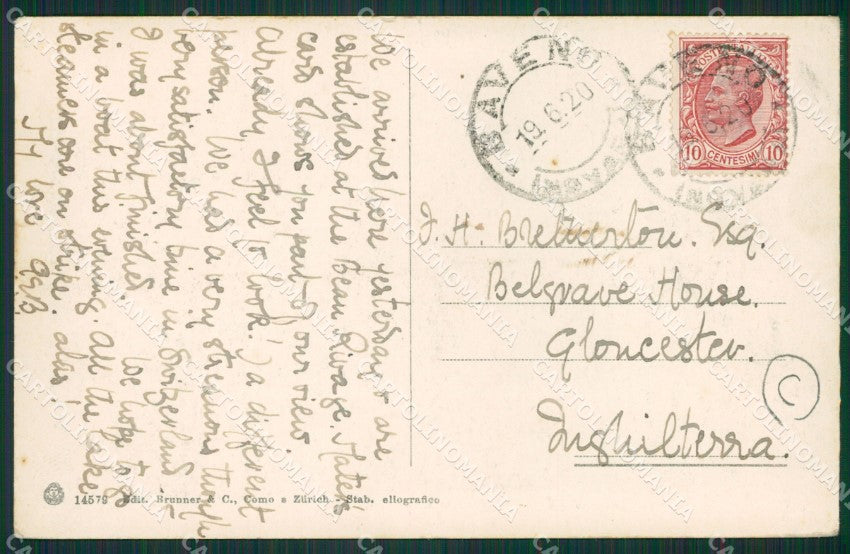 We arrived here yesterday & are
established at the Beau Rivage. Kate's
card shows you part of our view
Already I feel (& look!) a different
person. We had a very strenuous though
very satisfactory time in Switzerland &
I was about finished. We hope to go
in a boat this evening. All the lake
steamers are on strike, alas!
My love
F. H. Bretherton. Esq.
Belgrave House.
Gloucester.
Inghilterra.
C
BAVENO
19.6.20
(NOVARA)
BAVENO
POSTE
10 CENTESIMI 10
14579 Edit. Brunner & C., Como e Zürich - Stab. eliografico
CARTOLINOMANIA